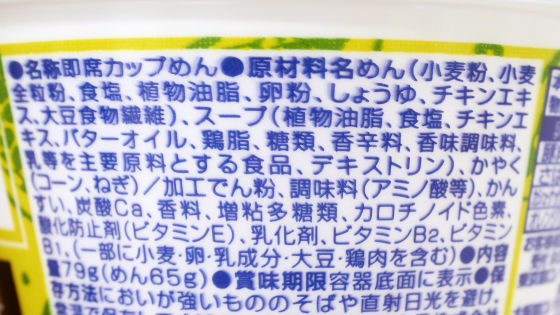 ●名称即席カップめん●原材料名めん(小麦粉、小麦
全粒粉、食塩、植物油脂、卵粉、しょうゆ、チキンエキ
ス、大豆食物繊維)、スープ(植物油脂、食塩、チキンエ
キス、バターオイル、鶏脂、糖類、香辛料、香味調味料、
乳等を主要原料とする食品、デキストリン)、かやく
(コーン、ねぎ)/加工でん粉、調味料(アミノ酸等)、かん
すい、炭酸Ca、香料、増粘多糖類、カロチノイド色素、
酸化防止剤(ビタミンE)、乳化剤、ビタミンB2、ビタミン
B1、(一部に小麦・卵・乳成分・大豆・鶏肉を含む)●内容
量79g(めん65g)●賞味期限容器底面に表示●保
存方法においが強いもののそばや直射日光を避け、